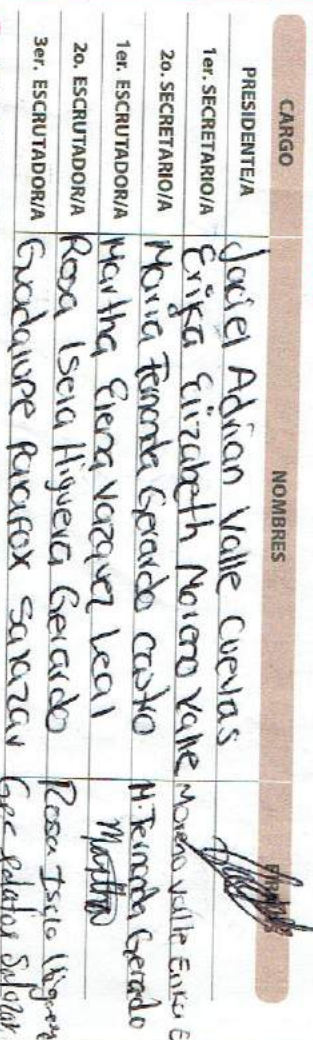 CARGO NOMBRES
PRESIDENTE/A Jaciel Adrian Valle Cuevas
1er. SECRETARIO/A Erika Elizabeth Moreno Valle Moreno Valle Erika E
2o. SECRETARIO/A Maria Fernanda Gerardo Castro M. Fernanda Gerardo
1er. ESCRUTADOR/A Martha Elena Vazquez Leal Martha
2o. ESCRUTADOR/A Rosa Isela Higuera Gerardo Rosa Isela Higuera
3er. ESCRUTADOR/A Guadalupe Parafox Sarazar Salazar